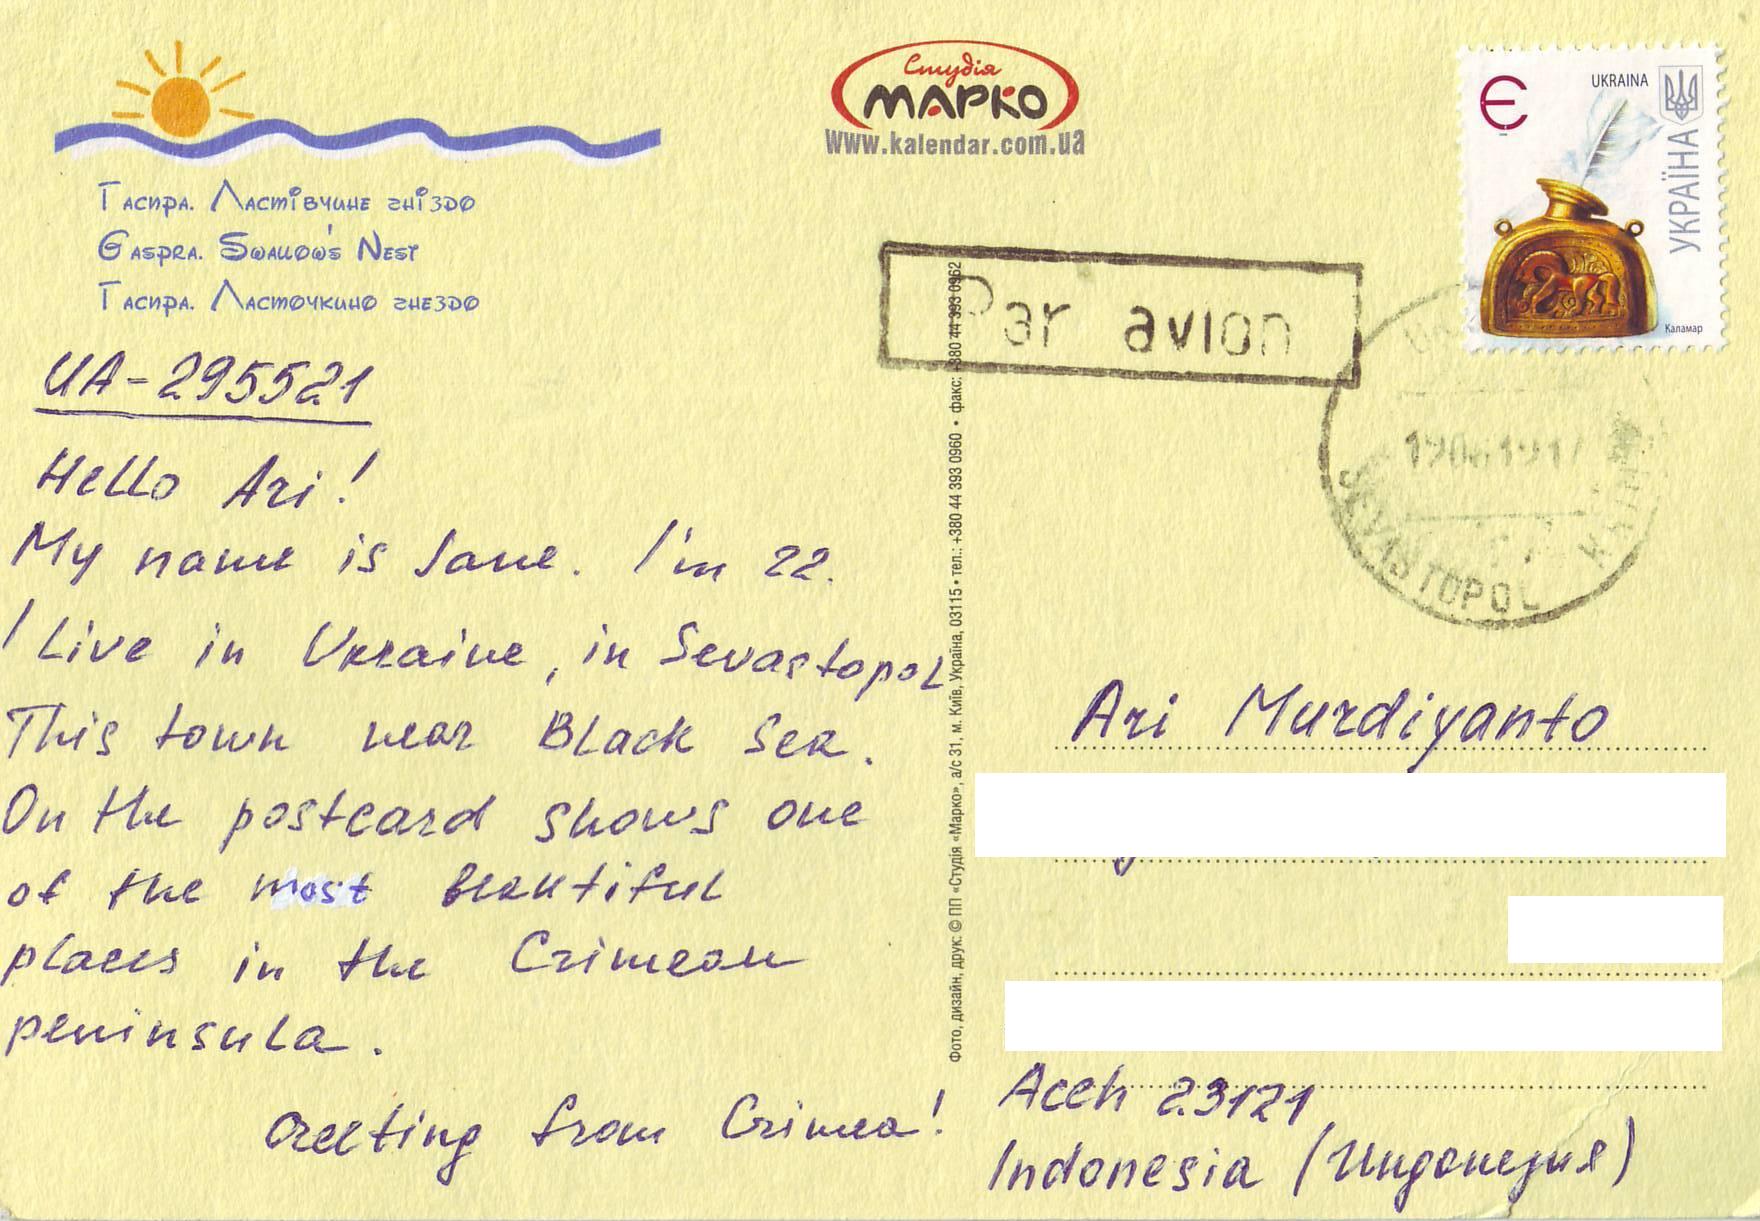 Студія
МАРКО
www.kalendar.com.ua
Гаспра. Ластівчине гніздо
Gaspra. Swallow's Nest
Гаспра. Ласточкино гнездо
UA-295521
Hello Ari!
My name is Jane. I'm 22.
I Live in Ukraine, in Sevastopol
This town near Black Sea.
On the postcard shows one
of the most beautiful
places in the Crimean
peninsula.
Greeting from Crimea!
Фото, дизайн, друк: © ПП «Студія «Марко», а/с 31, м. Київ, Україна, 03115 • тел.: +380 44 393 0960 • факс: +380 44 393 0962
Є
UKRAINA
УКРАЇНА
Каламар
Par avion
SEVASTOPOL
Ari Murdiyanto
Aceh 23121
Indonesia (Индонезия)